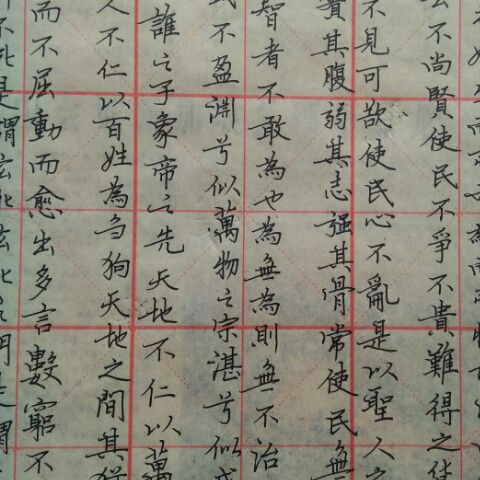 去不尚賢使民不爭不貴難得之貨
不見可欲使民心不亂是以聖人之
實其腹弱其志强其骨常使民無
智者不敢為也為無為則無不治
或不盈淵兮似萬物之宗湛兮似或
誰之子象帝之先天地不仁以萬
人不仁以百姓為芻狗天地之間其猶
而不屈動而愈出多言數窮不
不死是謂玄牝玄牝之門是謂